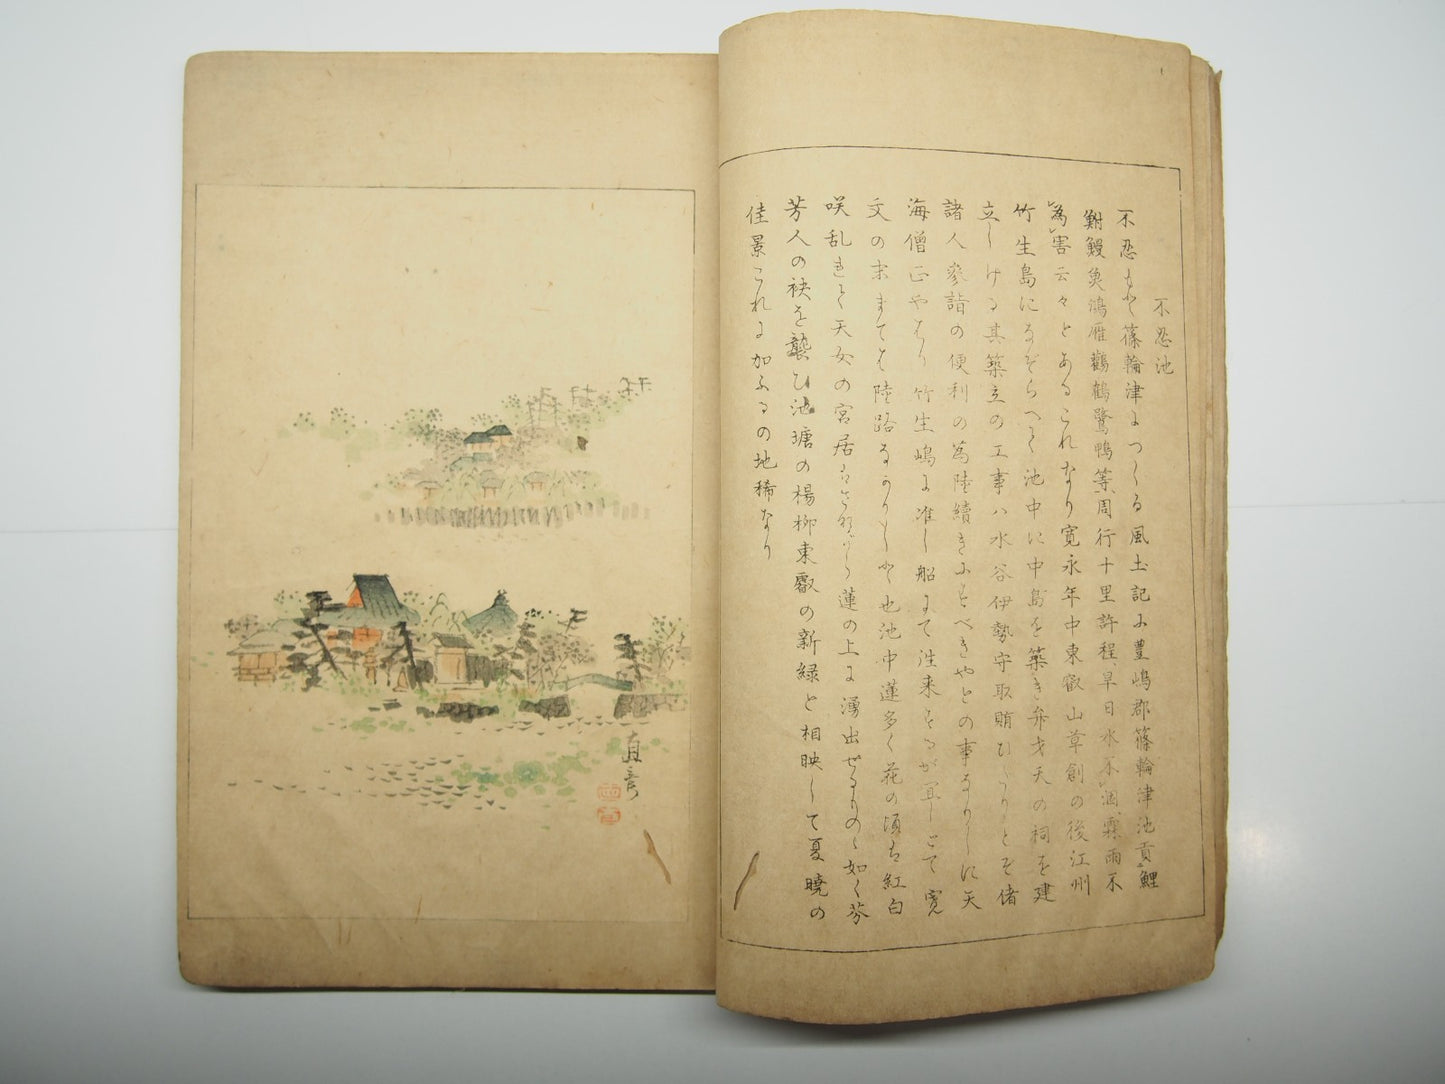 不忍池
不忍もと篠輪津につくる風土記に豊嶋郡篠輪津池貢鯉
鮒鰻魚鴻雁鸛鶴鷺鴨等周行十里許程旱日水不涸霖雨不
為害云々とあるこれなり寛永年中東叡山草創の後江州
竹生島になぞらへて池中に中島を築き弁才天の祠を建
立しける其築立の工事ハ水谷伊勢守取賄ひしりとぞ諸
諸人参詣の便利の為陸続きにすべきやとの事なりしに天
海僧正やはり竹生嶋に准し船にて往来するが宜しとて寛
文の末まては陸路なかりしと也池中蓮多く花の頃は紅白
咲乱れて天女の宮居はさながら蓮の上に湧出せるものゝ如く芬
芳人の袂を襲ひ池塘の楊柳東叡の新緑と相映して夏暁の
佳景これに加ふるの地稀なり
直彦